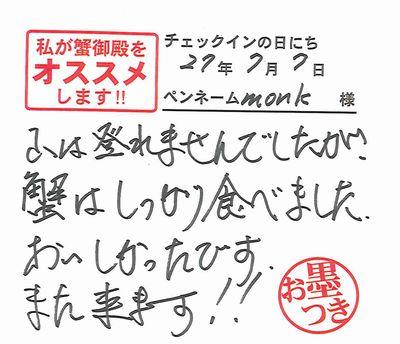 私が蟹御殿を
オススメ
します!!
チェックインの日にち
27年7月7日
ペンネーム monk 様
山は登れませんでしたが、
蟹はしっかり食べました。
おいしかったです。
また来ます!!
お墨つき